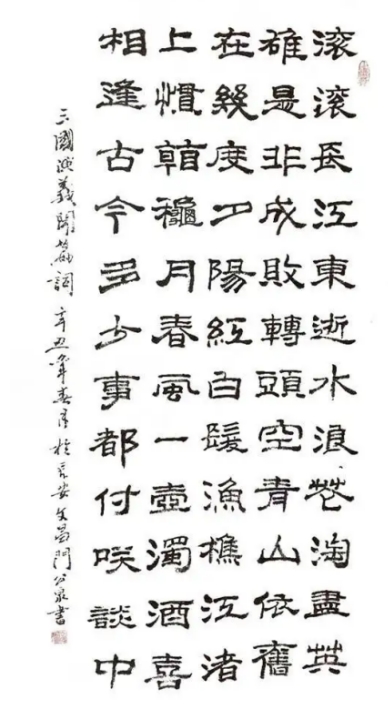 滚滚長江東逝水浪花淘盡英
雄是非成敗轉頭空青山依舊
在幾度夕陽紅白髮漁樵江渚
上慣看龝月春風一壺濁酒喜
相逢古今多少事都付咲談中
三國演義開篇詞 辛丑年春月於長安文昌門公泉書